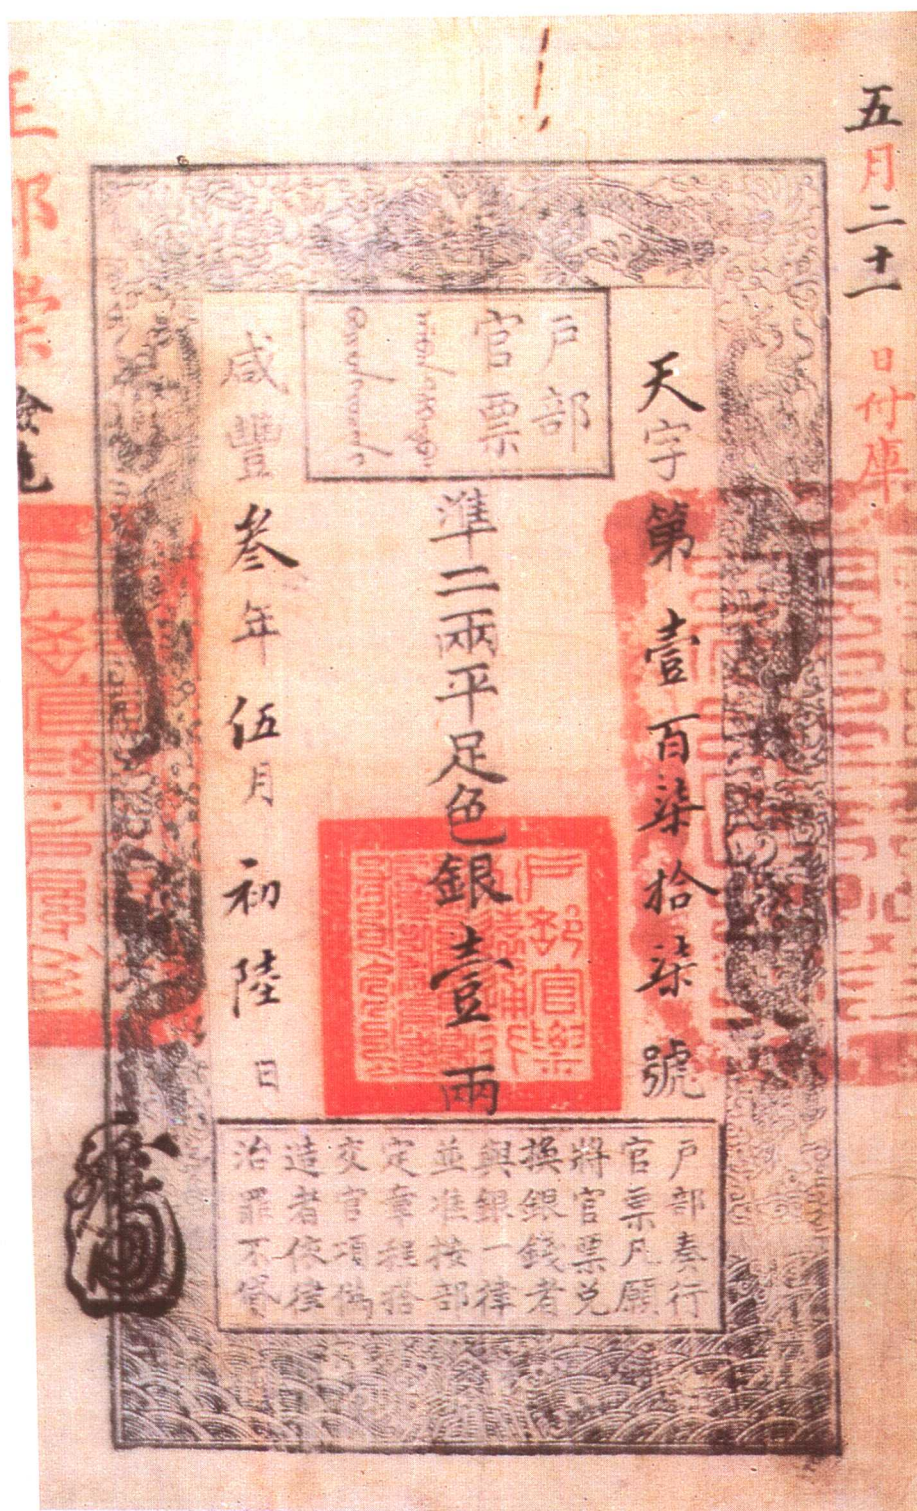 五月二十一日付庫
天字第壹百柒拾柒號
戶部
官票
準二兩平足色銀壹兩
咸豐叁年伍月初陸日
戶部奏行
官票凡願
將官票兌
換銀錢者
與銀一律
並准按部
定章程搭
交官項偽
造者依律
治罪不貸